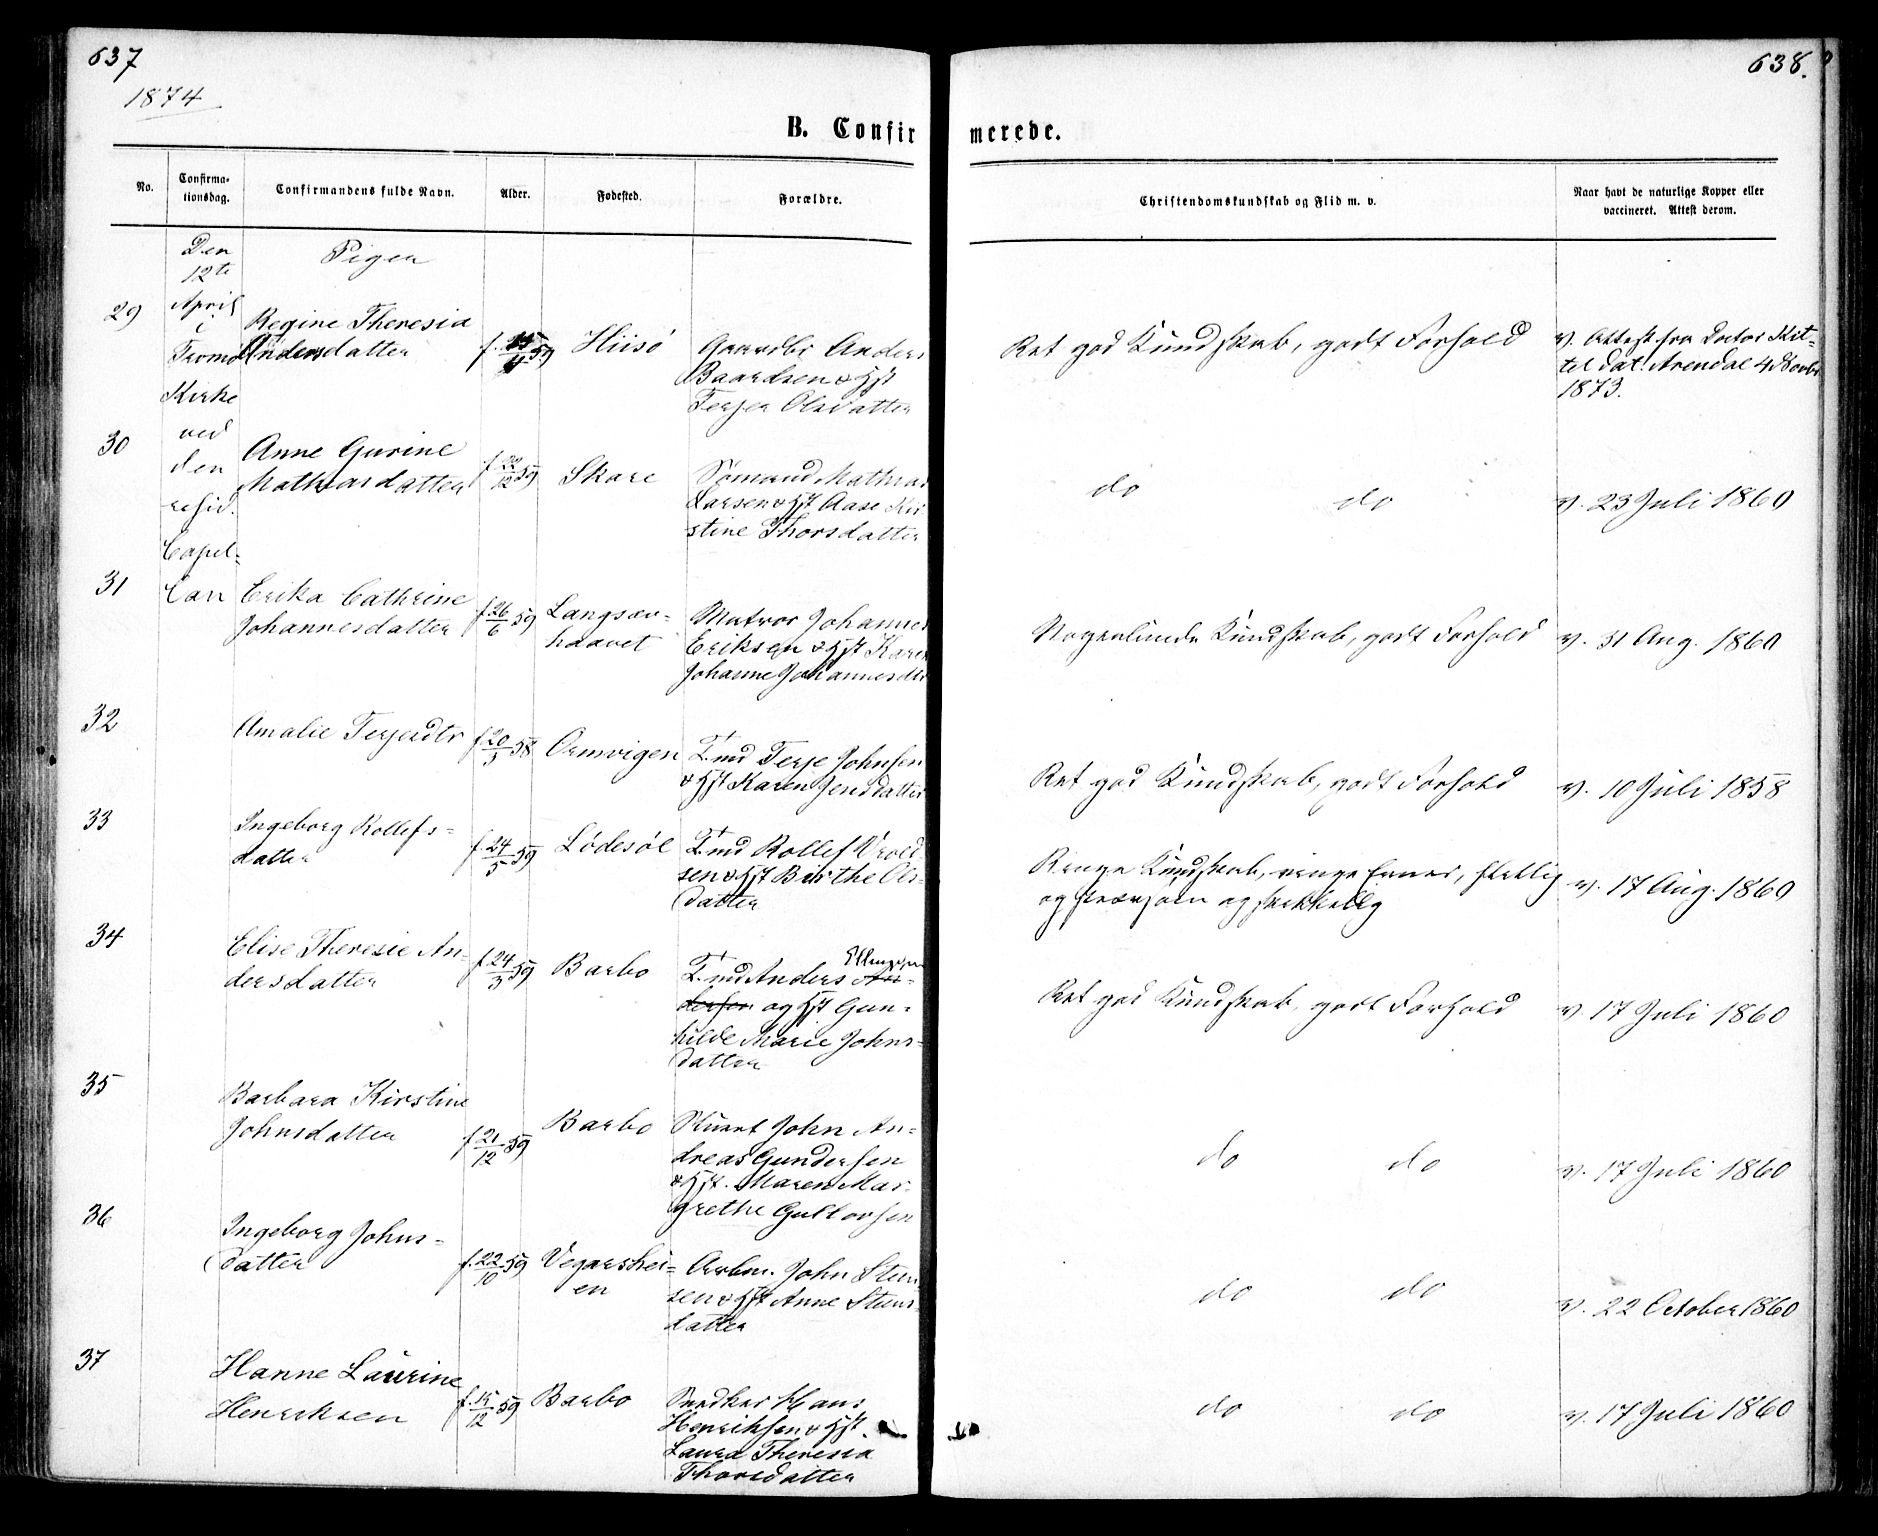 637
638.
1874
B. Confirmerede.
No.
Confirma-
tionsdag.
Confirmandens fulde Navn.
Alder.
Fødested.
Forældre.
Christendomskundskab og Flid m. v.
Naar havt de naturlige Kopper eller
vaccineret. Attest derom.
Den
12te
April
i
Tromø
Kirke
ved
den
resid.
Capel-
lan
Pigen
29
Regine Theresia
Andersdatter
f. 59
Hiisö
Gaardbr Anders
Baardsen & Hst
Terjer Olsdatter
Ret god Kundskab, godt Forhold
v. Attest fra Doctor Kit-
tel dat. Arendal 4 Novbr
1873.
30
Anne Gurine
Mathiasdatter
f. 22/12 59
Skare
Sømand Mathias
Larsen & Hst Aase Kir-
stine Thorsdatter
do do
v. 23 Juli 1860
31
Erika Cathrine
Johannesdatter
f. 26/6 59
Langsæv-
haavet
Matros Johannes
Eriksen & Hst Karen
Johanne Johannesdtr
Nogenlunde Kundskab, godt Forhold
v. 31 Aug. 1860
32
Amalie Terjerdtr
f. 20/3 58
Ormvigen
T.md Terje Johnsen
& Hst Karen Jensdatter
Ret god Kundskab, godt Forhold
v. 10 Juli 1858
33
Ingeborg Rollefs-
datter
f. 24/5 59
Lödesöl
T.md Rollef Vrold-
sen & Hst Birthe Ols-
datter
Ringe Kundskab, ringe Evner, flittig
og og skikkelig
v. 17 Aug. 1860
34
Elise Theresie An-
dersdatter
f. 24/3 59
Barbo
Ellingsen
T.md Anders An-
dersen og Hst Gun-
hilde Marie Johns-
datter
Ret god Kundskab, godt Forhold
v. 17 Juli 1860
35
Barbara Kirstine
Johnsdatter
f. 21/12 59
Barbo
Stuert John An-
dreas Gundersen
& Hst. Maren Mar-
grethe Gullovsen
do do
v. 17 Juli 1860
36
Ingeborg Johns-
datter
f. 22/10 59
Vegarshei-
en
Arbm. John Steen-
sen & Hst Anne Steens-
datter
do do
v. 22 October 1860
37
Hanne Laurine
Henriksen
f. 15/12 59
Barbo
Snedker Hans
Henriksen & Hst
Laura Theresia
Thorsdatter
do do
v. 17 Juli 1860